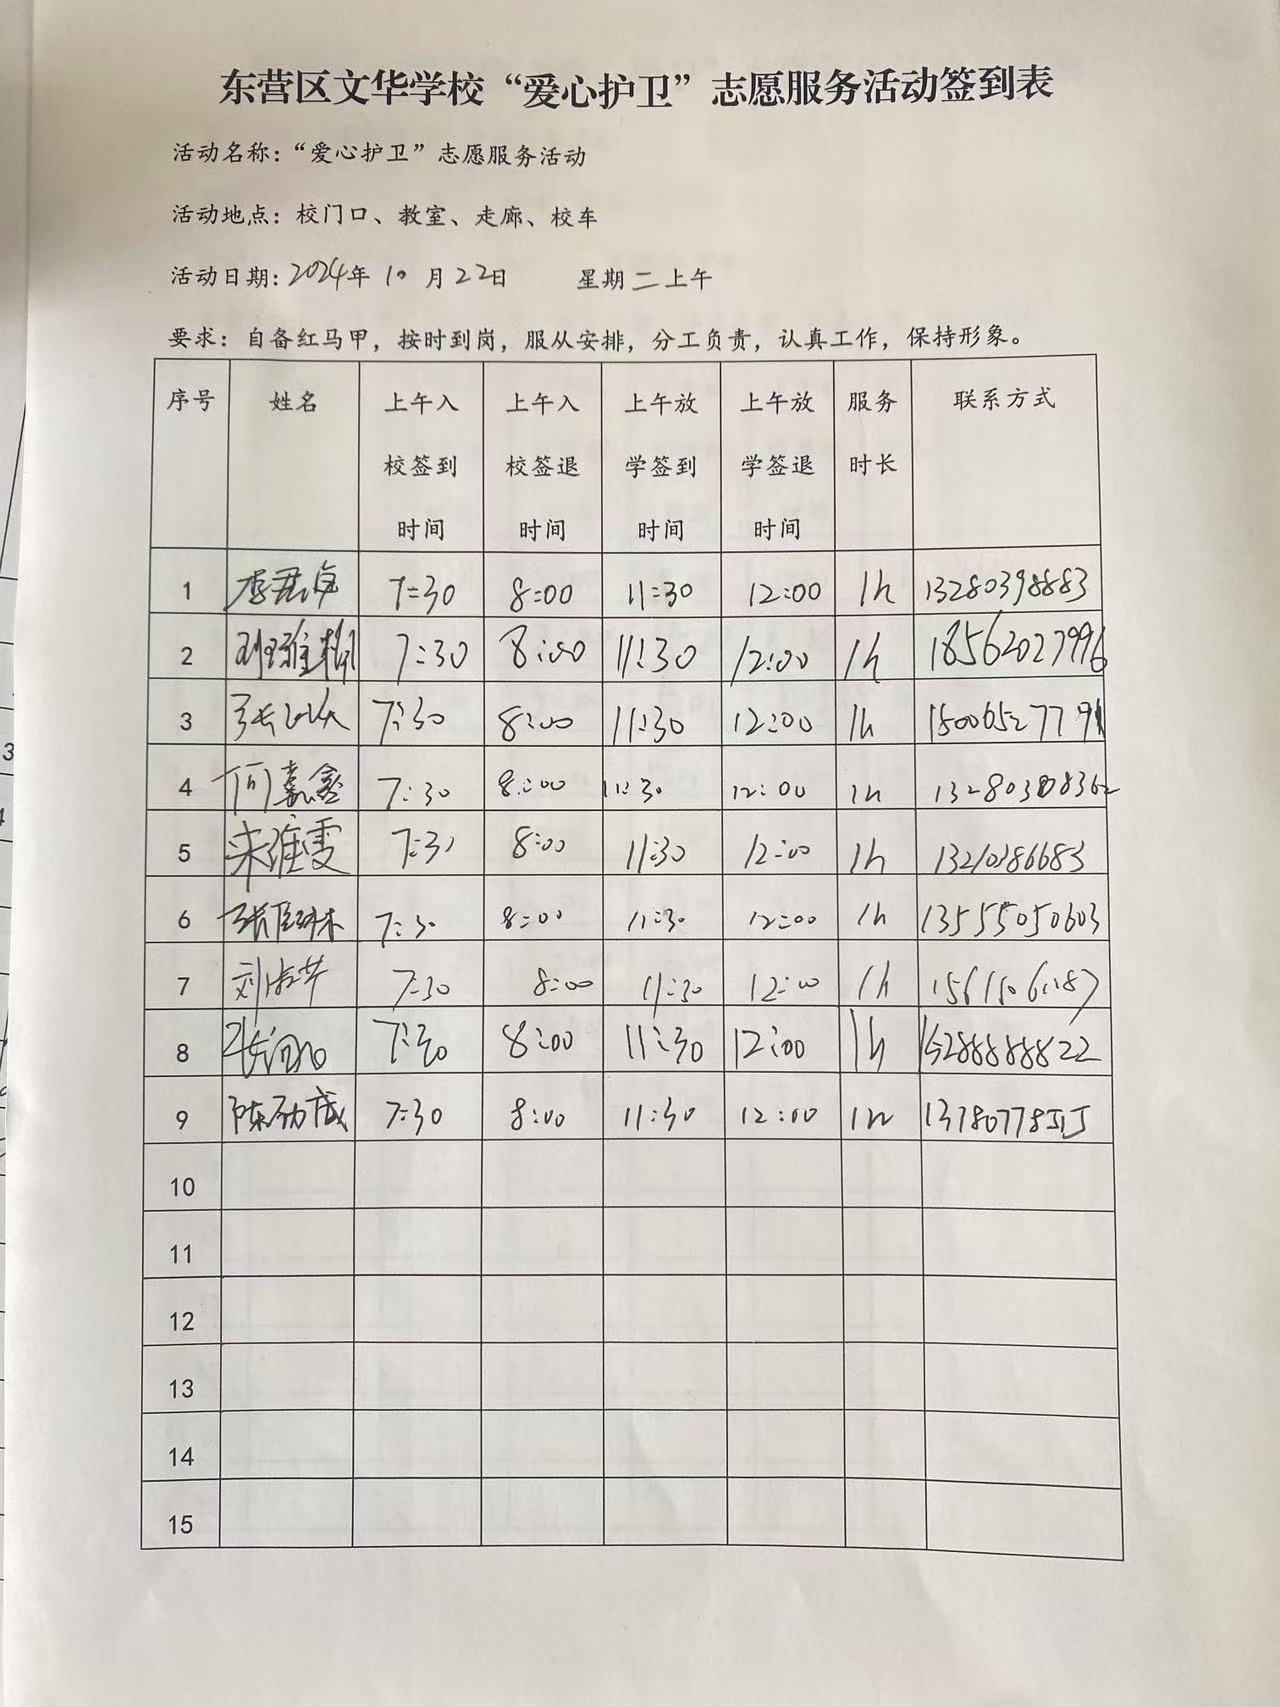 东营区文华学校“爱心护卫”志愿服务活动签到表
活动名称：“爱心护卫”志愿服务活动
活动地点：校门口、教室、走廊、校车
活动日期：2024年 10 月 22日 星期 二 上午
要求：自备红马甲，按时到岗，服从安排，分工负责，认真工作，保持形象。
序号 姓名 上午入校签到时间 上午入校签退时间 上午放学签到时间 上午放学签退时间 服务时长 联系方式
1 李君卓 7:30 8:00 11:30 12:00 1h 13280398883
2 7:30 8:00 11:30 12:00 1h 18562027996
3 7:30 8:00 11:30 12:00 1h
4 何嘉鑫 7:30 8:00 11:30 12:00 1h
5 宋维雯 7:30 8:00 11:30 12:00 1h 13210386683
6 7:30 8:00 11:30 12:00 1h 13555050603
7 7:30 8:00 11:30 12:00 1h
8 7:30 8:00 11:30 12:00 1h
9 7:30 8:00 11:30 12:00 1h
10
11
12
13
14
15